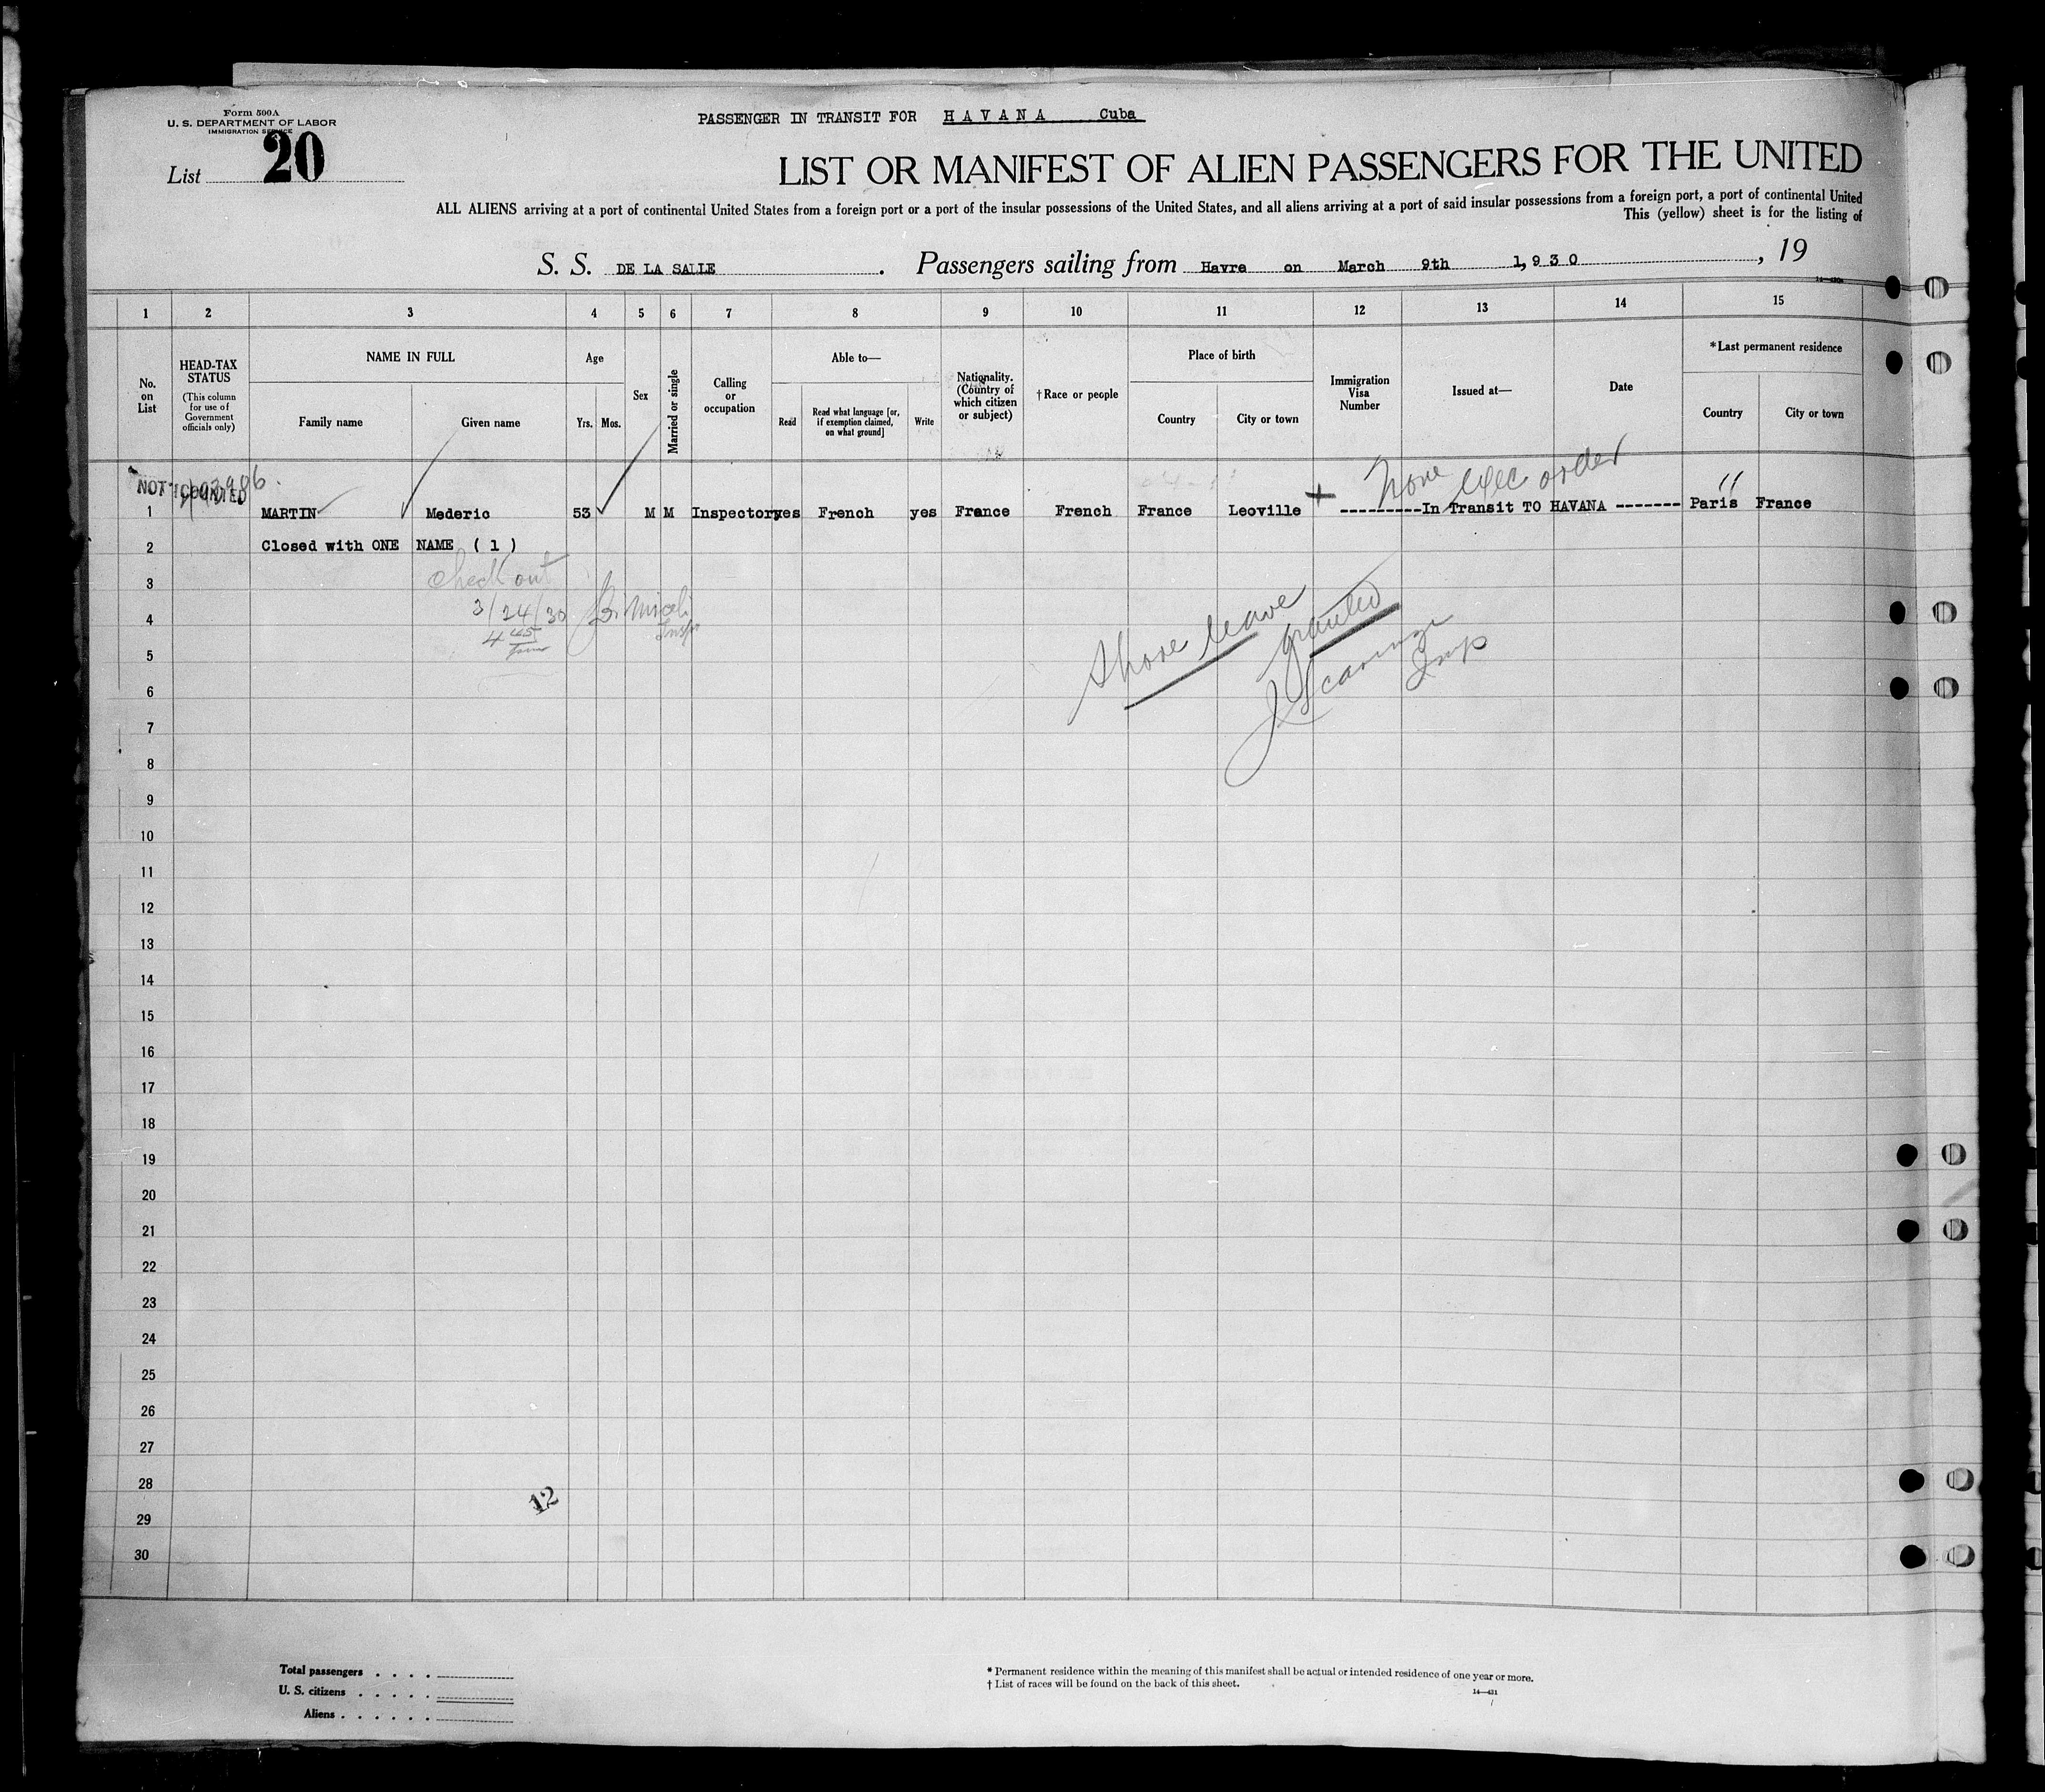 Form 500A
U. S. DEPARTMENT OF LABOR
IMMIGRATION SERVICE
PASSENGER IN TRANSIT FOR HAVANA Cuba
List 20
LIST OR MANIFEST OF ALIEN PASSENGERS FOR THE UNITED
ALL ALIENS arriving at a port of continental United States from a foreign port or a port of the insular possessions of the United States, and all aliens arriving at a port of said insular possessions from a foreign port, a port of continental United
This (yellow) sheet is for the listing of
S. S. DE LA SALLE . Passengers sailing from Havre on March 9th 1,930 , 19
1 2 3 4 5 6 7 8 9 10 11 12 13 14 15
No. on List
HEAD-TAX STATUS (This column for use of Government officials only)
NAME IN FULL
Family name Given name
Age
Yrs. Mos.
Sex
Married or single
Calling or occupation
Able to—
Read
Read what language [or, if exemption claimed, on what ground]
Write
Nationality. (Country of which citizen or subject)
†Race or people
Place of birth
Country City or town
Immigration Visa Number
Issued at—
Date
*Last permanent residence
Country City or town
NOT COUNTED
None Exec order
1 MARTIN Mederic 53 M M Inspector yes French yes France French France Leoville ---------In Transit TO HAVANA ------- Paris France
2 Closed with ONE NAME ( 1 )
Check out
3
3/24/30
4
4 45
Insp
5
Shore leave granted
Insp
6
7
8
9
10
11
12
13
14
15
16
17
18
19
20
21
22
23
24
25
26
27
28
12
29
30
Total passengers . . . .
U. S. citizens . . . . .
Aliens . . . . . .
* Permanent residence within the meaning of this manifest shall be actual or intended residence of one year or more.
† List of races will be found on the back of this sheet.
14—421